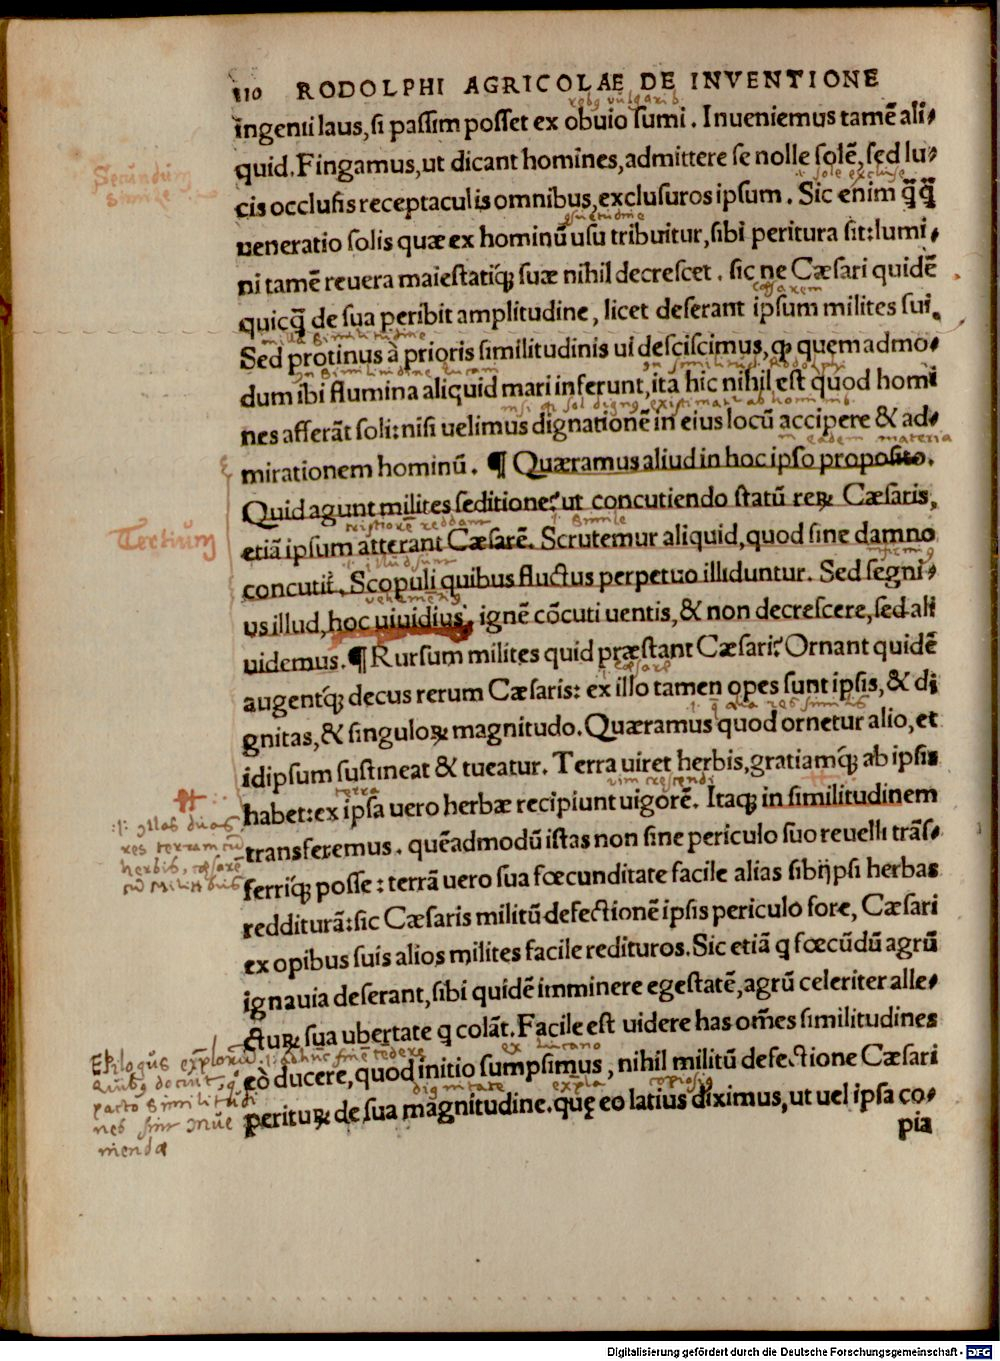 110 RODOLPHI AGRICOLAE DE INVENTIONE
rebꝰ vulgarib.
ingenii laus, si passim posset ex obuio sumi. Inueniemus tamē ali⸗
quid. Fingamus, ut dicant homines, admittere se nolle solē, sed lu⸗
Secundum
simile
.i. sole excluse
cis occlusis receptaculis omnibus, exclusuros ipsum. Sic enim q̄q̄
ueneratio solis quæ ex hominū usu tribuitur, sibi peritura sit: lumi⸗
ni tamē reuera maiestatiq́ꝫ suæ nihil decrescet. sic ne Cæsari quidē
cæsarem
quicq̄ de sua peribit amplitudine, licet deserant ipsum milites sui.
illa similitudine
Sed protinus à prioris similitudinis ui desciscimus, ꝙ quemadmo⸗
in similitudine lucani
dum ibi flumina aliquid mari inferunt, ita hic nihil est quod homi
nisi ꝙ sol dignꝰ existimatur ab hominib.
nes afferāt soli: nisi uelimus dignationē in eius locū accipere & ad⸗
in eadem materia
mirationem hominū. ¶ Quæramus aliud in hoc ipso proposito.
Quid agunt milites seditione? ut concutiendo statū reꝝ Cæsaris,
Tertium
.i. simile
etiā ipsum atterant Cæsarē. Scrutemur aliquid, quod sine damno
concutit. Scopuli quibus fluctus perpetuo illiduntur. Sed segni⸗
us illud, hoc uiuidius, ignē cōcuti uentis, & non decrescere, sed ali
uidemus. ¶ Rursum milites quid præstant Cæsari? Ornant quidē
cæsare
augentq́ꝫ decus rerum Cæsaris: ex illo tamen opes sunt ipsis, & di
gnitas, & singuloꝝ magnitudo. Quæramus quod ornetur alio, et
idipsum sustineat & tueatur. Terra uiret herbis, gratiamq́ꝫ ab ipsis
terra
vim crescendi
habet: ex ipsa uero herbæ recipiunt uigorē. Itaqꝫ in similitudinem
.i. illas duas
res terram cū
herbis, cæsarē
cū militibus
transferemus. quēadmodū istas non sine periculo suo reuelli trāſ⸗
ferriq́ꝫ posse: terrā uero sua fœcunditate facile alias sibijpsi herbas
redditurā: sic Cæsaris militū defectionē ipsis periculo fore, Cæsari
ex opibus suis alios milites facile redituros. Sic etiā q fœcūdū agrū
ignauia deserant, sibi quidē imminere egestatē, agrū celeriter alle⸗
cturꝝ sua ubertate q colāt. Facile est uidere has om̄es similitudines
ex Lucano
eò ducere, quod initio sumpsimus, nihil militū defectione Cæsari
dignitate
expla
copiosiꝰ
perituꝝ de sua magnitudine. quę eo latius diximus, ut uel ipsa co⸗
pia
Digitalisierung gefördert durch die Deutsche Forschungsgemeinschaft - DFG